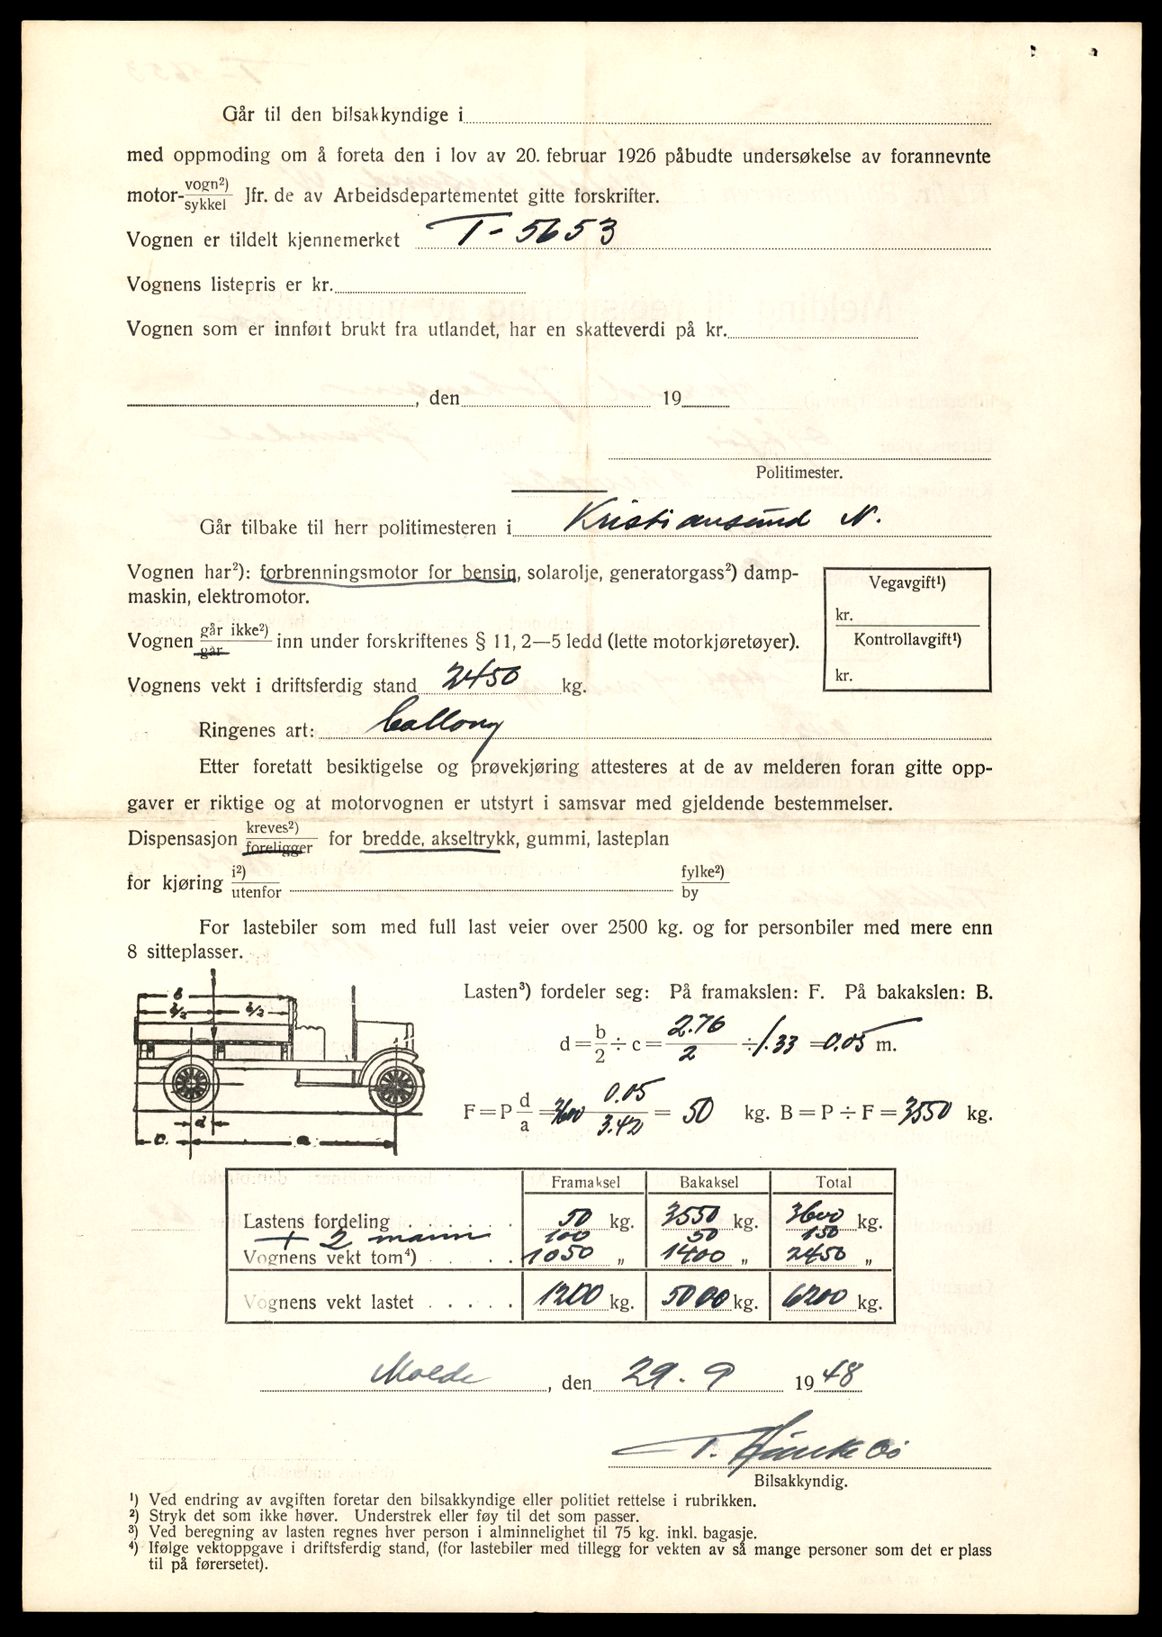 Går til den bilsakkyndige i
med oppmoding om å foreta den i lov av 20. februar 1926 påbudte undersøkelse av forannevnte
motor- vogn²) / sykkel Jfr. de av Arbeidsdepartementet gitte forskrifter.
Vognen er tildelt kjennemerket T-5653
Vognens listepris er kr.
Vognen som er innført brukt fra utlandet, har en skatteverdi på kr.
, den 19
Politimester.
Går tilbake til herr politimesteren i Kristiansund N.
Vognen har²): forbrenningsmotor for bensin, solarolje, generatorgass²) damp-
maskin, elektromotor.
Vegavgift¹)
kr.
Kontrollavgift¹)
kr.
Vognen går ikke²) / går inn under forskriftenes § 11, 2—5 ledd (lette motorkjøretøyer).
Vognens vekt i driftsferdig stand 2450 kg.
Ringenes art: Ballong
Etter foretatt besiktigelse og prøvekjøring attesteres at de av melderen foran gitte opp-
gaver er riktige og at motorvognen er utstyrt i samsvar med gjeldende bestemmelser.
Dispensasjon kreves²) / foreligger for bredde, akseltrykk, gummi, lasteplan
for kjøring i²) / utenfor fylke²) / by
For lastebiler som med full last veier over 2500 kg. og for personbiler med mere enn
8 sitteplasser.
b
b/2 b/2
d
c. a
Lasten³) fordeler seg: På framakslen: F. På bakakslen: B.
d = b/2 ÷ c = 2.76/2 ÷ 1.33 = 0.05 m.
F = P d/a = 3600 0.05/3.42 = 50 kg. B = P ÷ F = 3550 kg.
Framaksel Bakaksel Total
Lastens fordeling . . . . . . 50 kg. 3550 kg. 3600 kg.
+ 2 mann 100 50 150
Vognens vekt tom⁴) . . . . . 1050 „ 1400 „ 2450 „
Vognens vekt lastet . . . . . 1200 kg. 5000 kg. 6200 kg.
Molde, den 29. 9 1948
Bilsakkyndig.
¹) Ved endring av avgiften foretar den bilsakkyndige eller politiet rettelse i rubrikken.
²) Stryk det som ikke høver. Understrek eller føy til det som passer.
³) Ved beregning av lasten regnes hver person i alminnelighet til 75 kg. inkl. bagasje.
⁴) Ifølge vektoppgave i driftsferdig stand, (for lastebiler med tillegg for vekten av så mange personer som det er plass
til på førersetet).